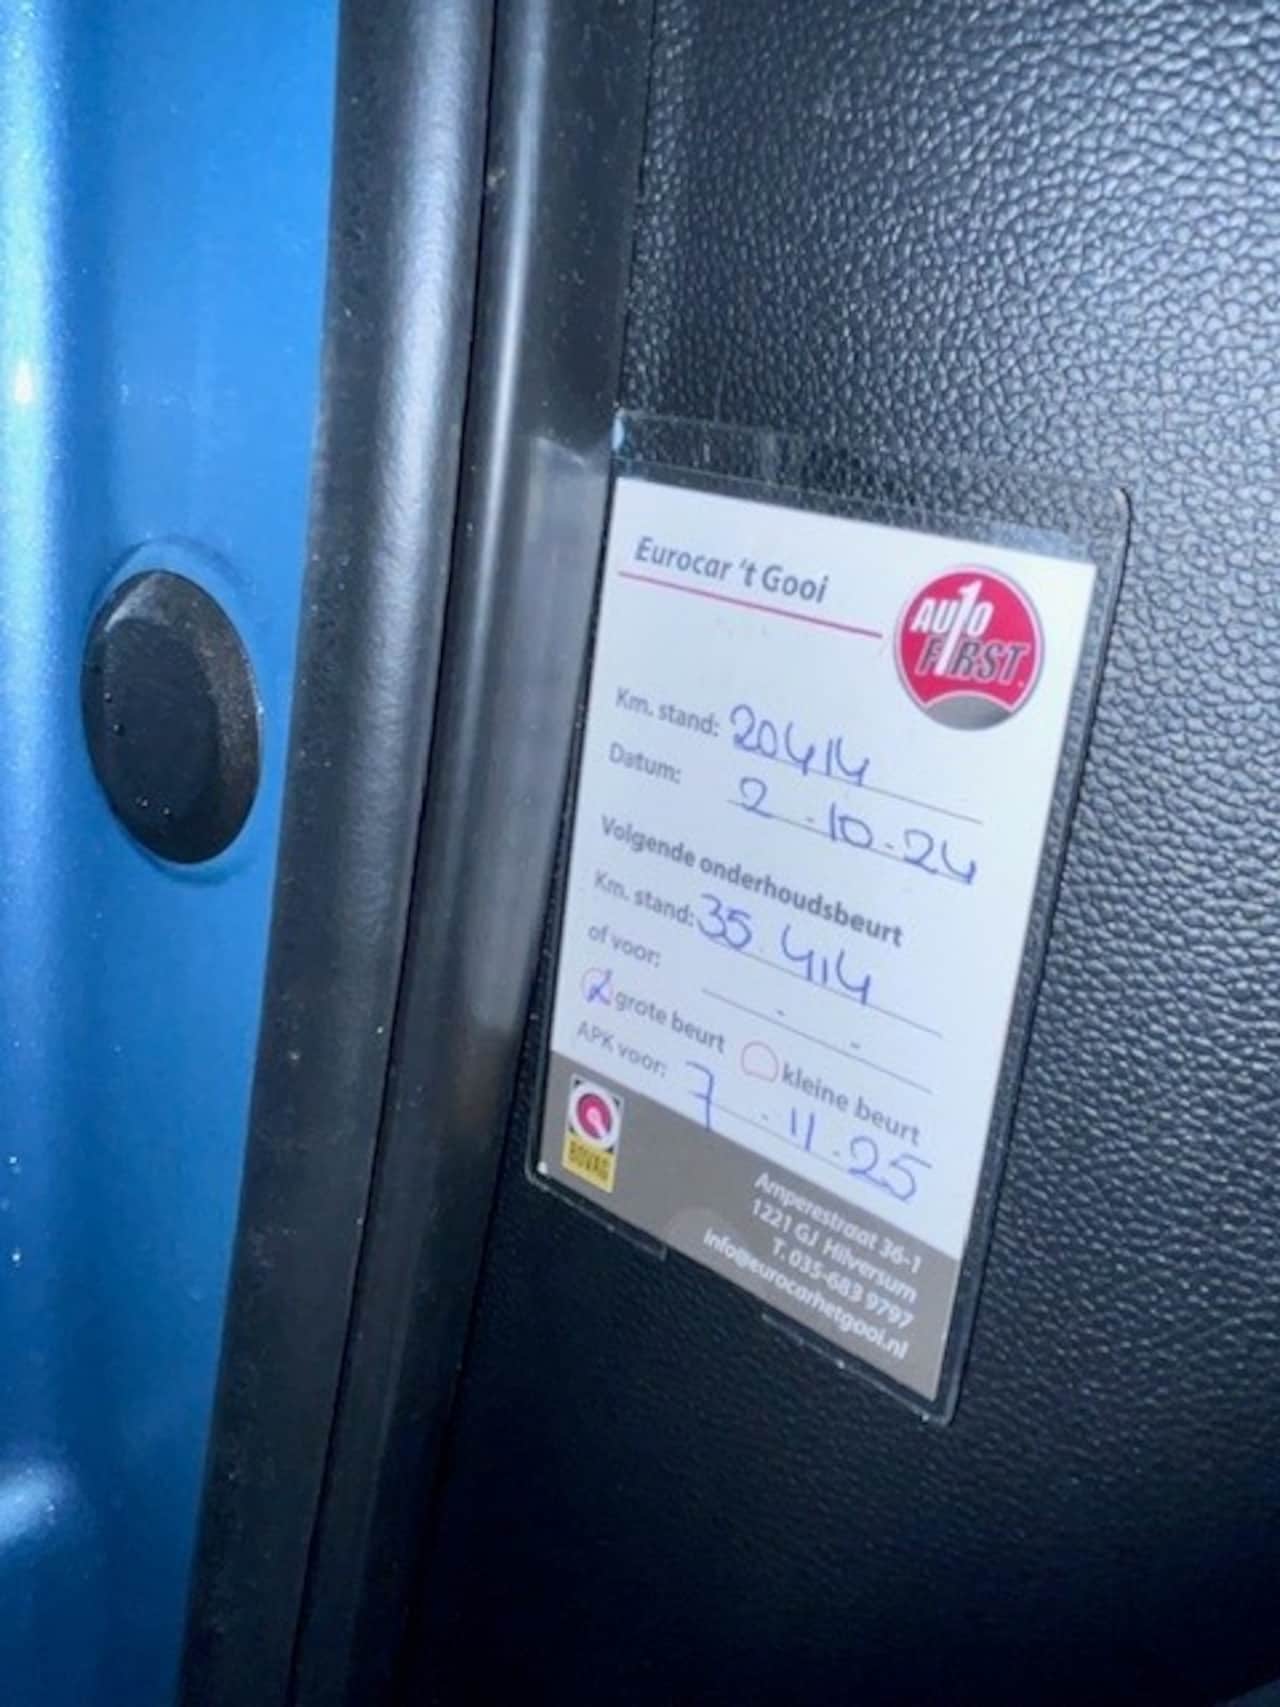 Eurocar 't Gooi
AUTO
FIRST
Km. stand: 20414
Datum: 2-10-24
Volgende onderhoudsbeurt
Km. stand: 35.414
of voor: - -
grote beurt kleine beurt
APK voor: 7-11-25
BOVAG
Amperestraat 36-1
1221 GJ Hilversum
T. 035-683 9797
info@eurocarhetgooi.nl